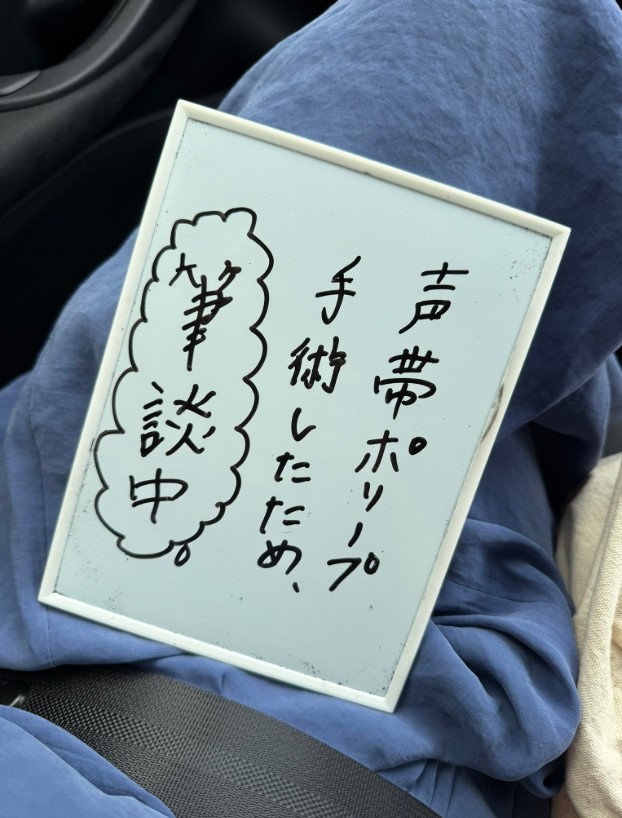 声帯ポリープ
手術したため、
筆談中。